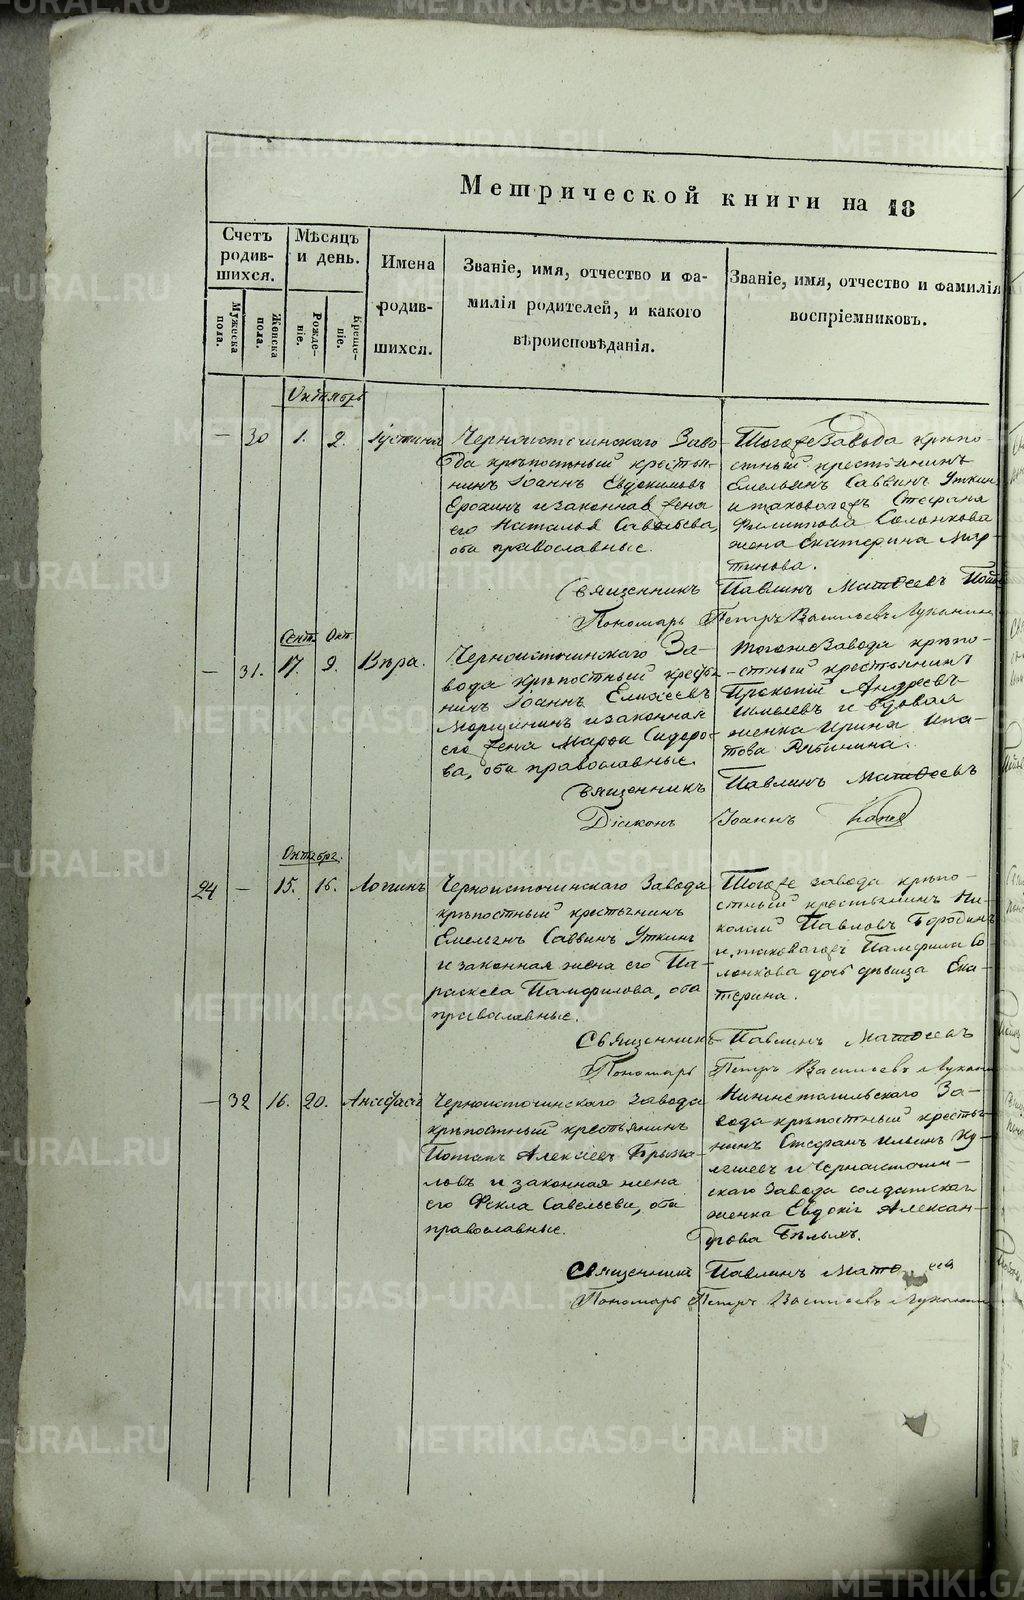 Метрической книги на 18
Счетъ родившихся.
Мужеска пола.
Женска пола.
Мѣсяцъ и день.
Рождение.
Крещеніе.
Имена родившихся.
Званіе, имя, отчество и фамилія родителей, и какого вѣроисповѣданія.
Званіе, имя, отчество и фамилія воспріемниковъ.
Октябрь
— 30 1. 2. Іустина
Черноисточинскаго Заво-
да крѣпостный крестья-
нинъ Іоаннъ Евдокимовъ
Ерохинъ и законная жена
его Наталья Савватьева,
оба православные.
Тогоже Завода крѣпо-
стный крестьянинъ
Емельянъ Саввинъ Уткин
и таковагожъ Стефана
Филиппова Солонкова
жена Екатерина Мар-
тинова.
Священникъ Павлинъ Матѳеевъ
Пономарь Петръ Васильевъ Луканин
Сент. Окт.
— 31. 17. 2. Вѣра.
Черноисточинскаго За-
вода крѣпостный крестья-
нинъ Іоаннъ Елисеевъ
Морщининъ и законная
его жена Марѳа Сидоро-
ва, оба православные.
Тогоже Завода крѣпо-
стный крестьянинъ
Прокопій Андреевъ
Шмелевъ и вдовая
женка Ирина Ипа-
това Рябинина.
Священникъ Павлинъ Матѳеевъ
Діаконъ Іоаннъ
Октября.
24 — 15. 16. Логинъ
Черноисточинскаго Завода
крѣпостный крестьянинъ
Емельянъ Саввинъ Уткинъ
и законная жена его Па-
раскева Памфилова, оба
православные.
Тогоже завода крѣпо-
стный крестьянинъ Ни-
колай Павловъ Бородинъ
и таковагожъ Памфила Со
лонкова дочь дѣвица Ека-
терина.
Священникъ Павлинъ Матѳеевъ
Пономарь Петръ Васильевъ Лукани
— 32 16. 20. Анафасія
Черноисточинскаго Завода
крѣпостный крестьянинъ
Потапъ Алексіевъ Брызга-
ловъ и законная жена
его Ѳекла Савельева, оба
православные.
Нижнетагильскаго За-
вода крѣпостный крестья-
нинъ Стефанъ Ильинъ Ку-
лешевъ и Черноисточин-
скаго Завода солдатская
женка Евдокія Алексан-
дрова Бѣлыхъ.
Священникъ Павлинъ
Пономарь Петръ Васильевъ Луканин
METRIKI.GASO-URAL.RU